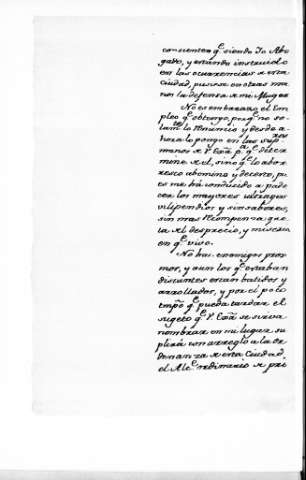 consienten q.e siendo Yo Abo
gado, y estando instruido
en las ocurrencias de esta
ciudad, pusiese en otras ma
nos la defensa de mi Muger
No es embarazo el Em
pleo q.e obtengo, porq.e no so
lam.te lo renuncio y desde a
hora lo pongo en las sup.res
manos de V. Exa. p.a q.e deter
mine de el, sino q.e lo abor
resco abomino y detesto, pu
es me há conducido a pade
cer los mayores ultrages
vilipendios y sinsabores,
sin mas recompensa que
la del desprecio, y miseria
en q.e vivo.
No hai enemigos proxi
mos, y aun los q.e estaban
distantes estan batidos y
arrollados, y por el poco
tmpo q.e pueda tardar el
sugeto q.e V. Exa. se sirva
nombrar en mi lugar su
plirá con arreglo a la or
denanza de esta Ciudad,
el Alc.e ordinario de pri